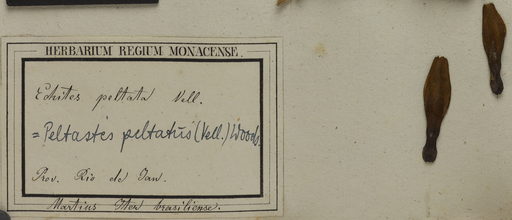 HERBARIUM REGIUM MONACENSE.
Echites peltata Vell.
= Peltastes peltatus (Vell.) Woods.
Prov. Rio de Jan.
Martius Iter brasiliense.